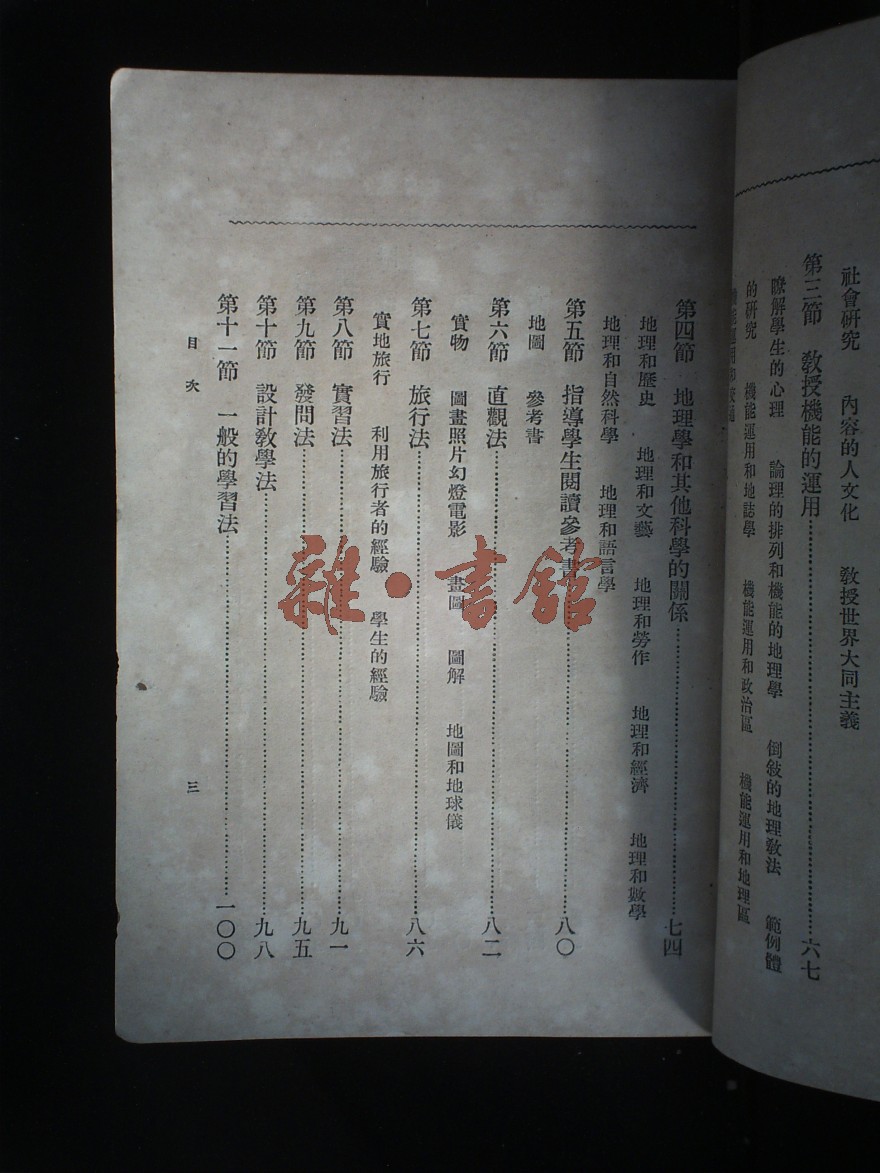 社會研究　內容的人文化　教授世界大同主義
第三節　教授機能的運用……六七
瞭解學生的心理　論理的排列和機能的地理學　倒敍的地理教法　範例體
的研究　機能運用和地誌學　機能運用和政治區　機能運用和地理區
第四節　地理學和其他科學的關係……七四
地理和歷史　地理和文藝　地理和勞作　地理和經濟　地理和數學
地理和自然科學　地理和語言學
第五節　指導學生閱讀參考書……八〇
地圖　參考書
第六節　直觀法……八二
實物　圖畫照片幻燈電影　畫圖　圖解　地圖和地球儀
第七節　旅行法……八六
實地旅行　利用旅行者的經驗　學生的經驗
第八節　實習法……九一
第九節　發問法……九五
第十節　設計教學法……九八
第十一節　一般的學習法……一〇〇
目次
三
雜·書館